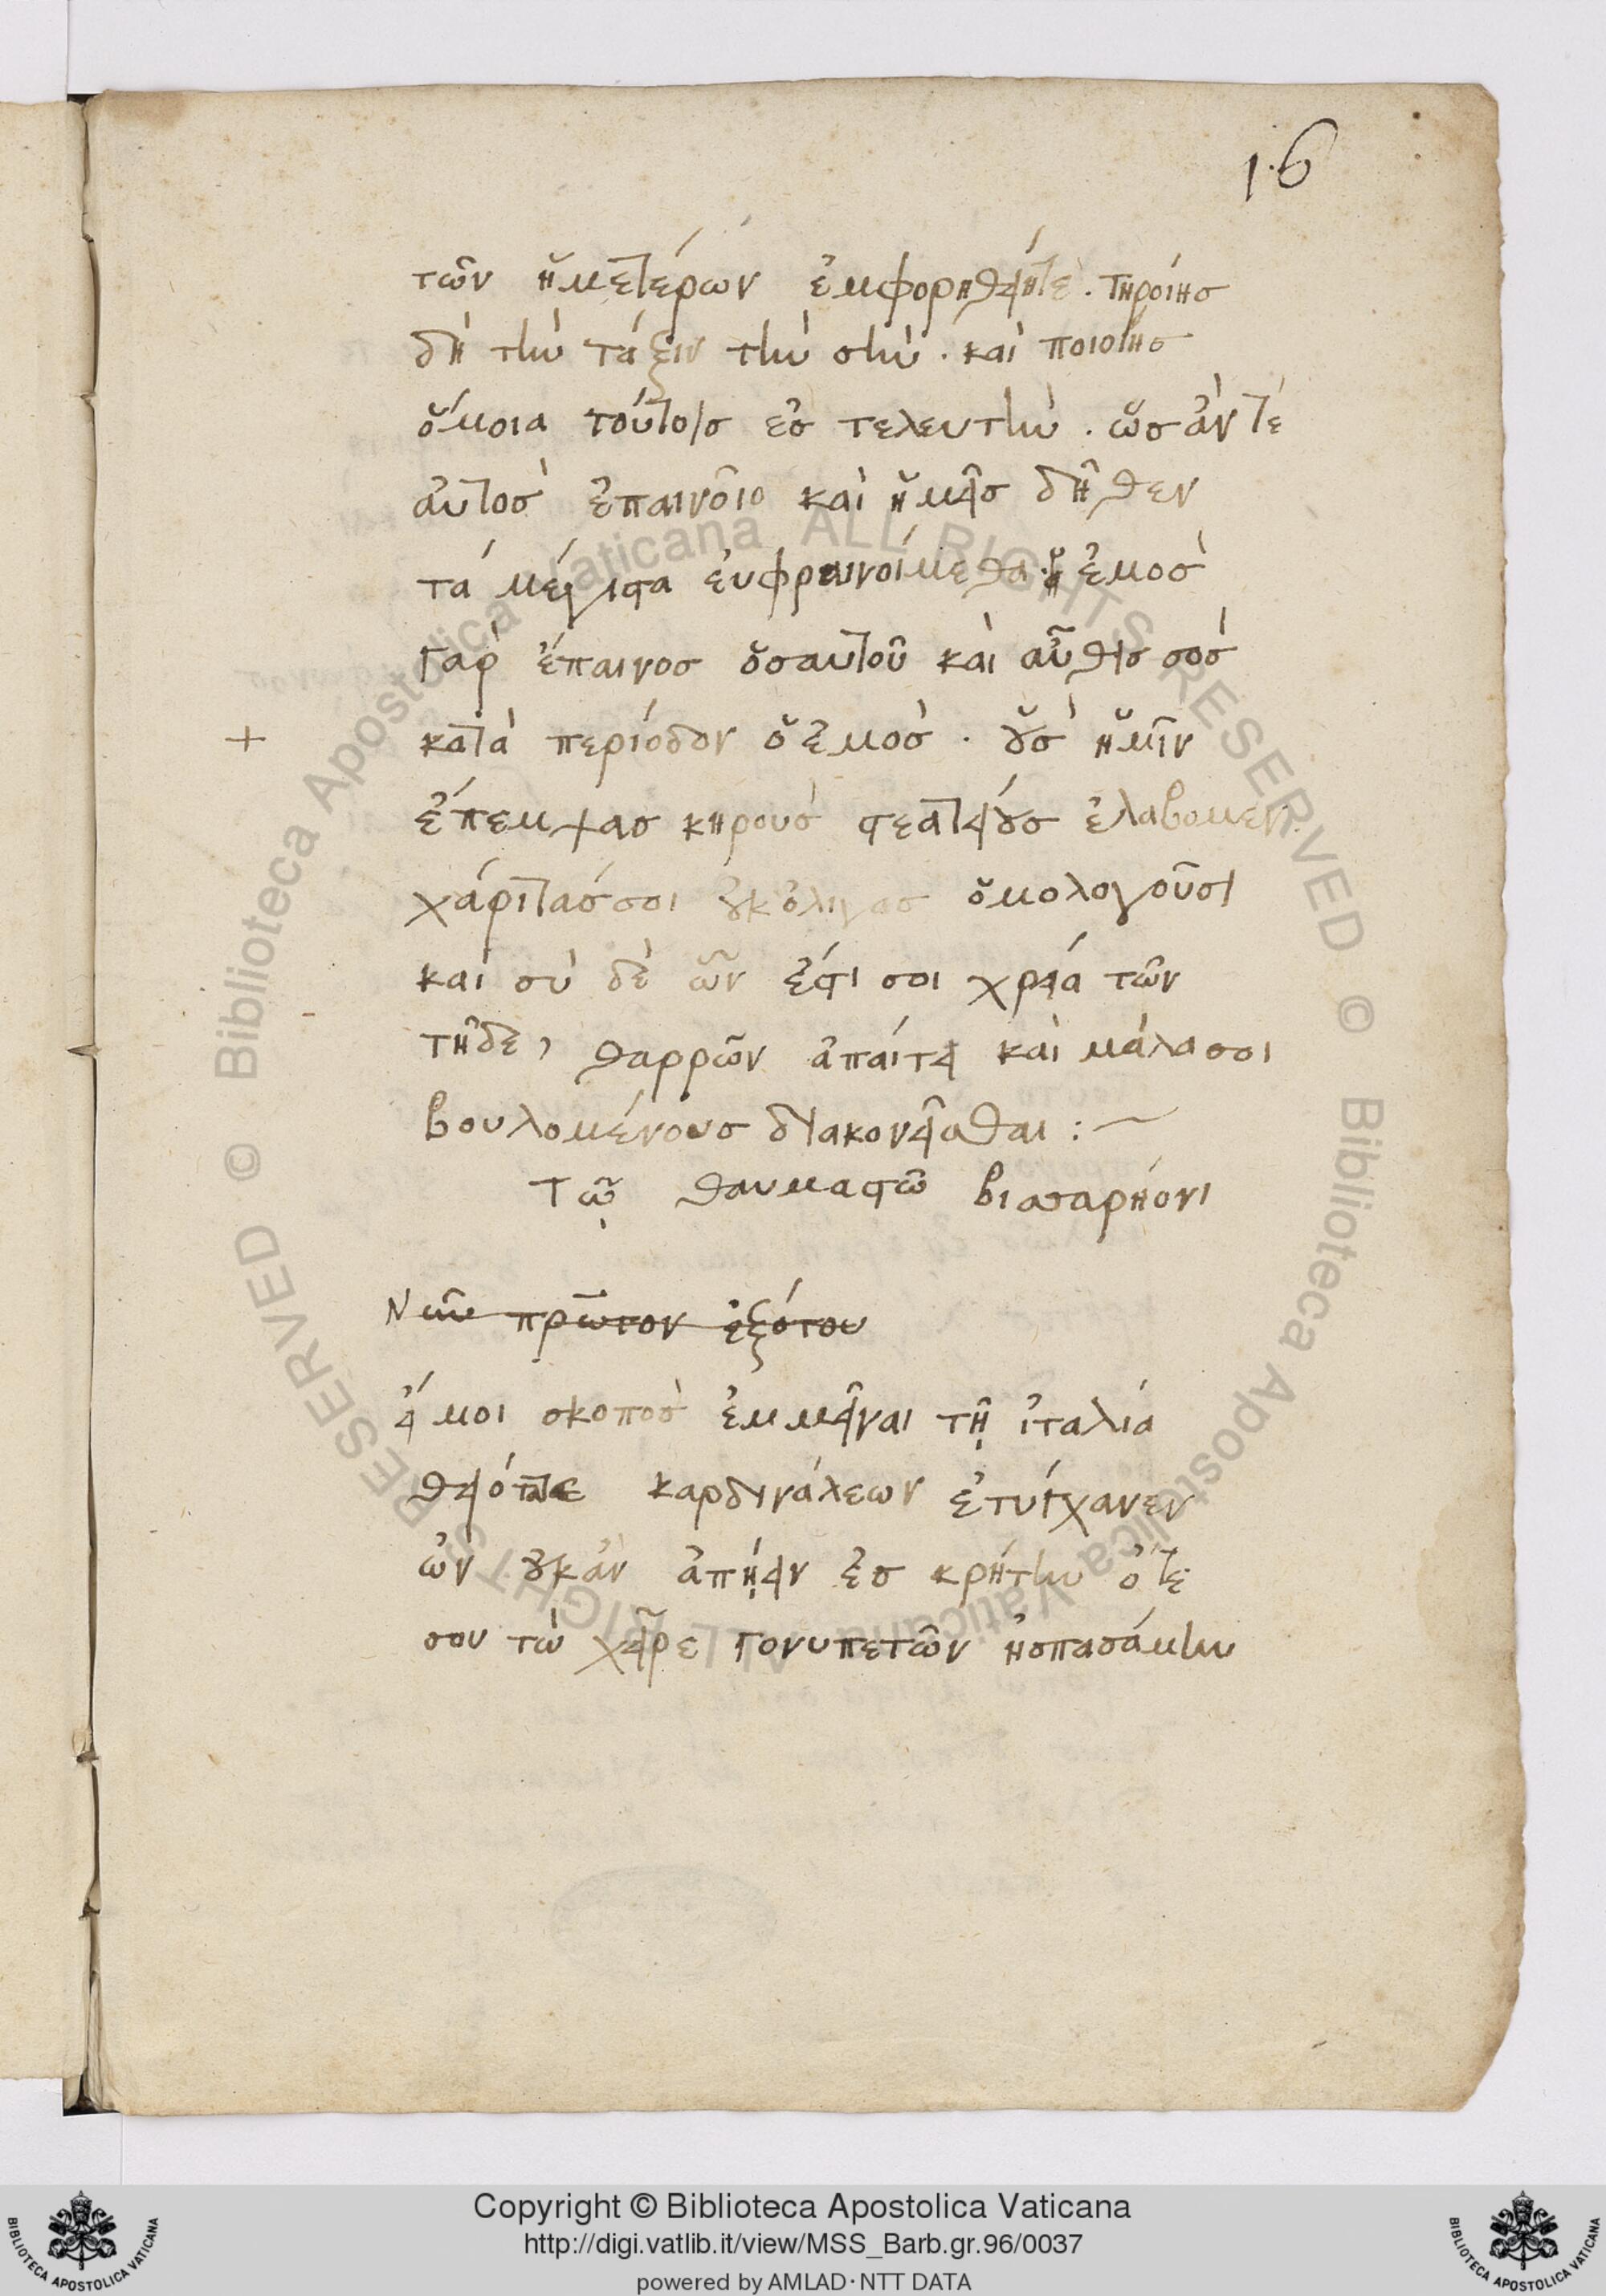 16
τῶν ἡμετέρων ἐμφορηθείητε. τηροίης
δὴ τὴν τάξιν τὴν σὴν. καὶ ποιοίης
ὅμοια τούτοις ἐς τελευτὴν. ὡς ἄν τὲ
αὐτὸς ἐπαινοῖο καὶ ἡμεῖς δῆθεν
τὰ μέγιστα εὐφραινοίμεθα. ἐμὸς
γὰρ ἔπαινος ὁ σαυτοῦ καὶ αὖθις σὸς
+ κατὰ περίοδον ὁ ἐμὸς. οὓς ἡμῖν
ἔπεμψας κηροὺς στεατείους ἐλάβομεν
χάριτάς σοι οὐκ ὀλίγας ὁμολογοῦσι
καὶ σὺ δὲ ὧν ἔστι σοι χρεία τῶν
τῇδε, θαρρῶν ἀπαίτει καὶ μάλα σοι
βουλομένους διακονεῖσθαι :~
Τῷ θαυμαστῶ βισσαρήονι
Νῦν πρῶτον ἐξότου
εἴ μοι σκοπὸς ἐμμεῖναι τῇ ἰταλία
θειότατε καρδινάλεων ἐτύγχανεν
ὢν οὐκ ἂν ἀπῄειν ἐς κρήτην ὅτε
σου τὼ χεῖρε γονυπετῶν ἠσπασάμην
Copyright © Biblioteca Apostolica Vaticana
http://digi.vatlib.it/view/MSS_Barb.gr.96/0037
powered by AMLAD·NTT DATA
BIBLIOTECA APOSTOLICA VATICANA
BIBLIOTECA APOSTOLICA VATICANA
© Biblioteca Apostolica Vaticana ALL RIGHTS RESERVED
© Biblioteca Apostolica Vaticana ALL RIGHTS RESERVED